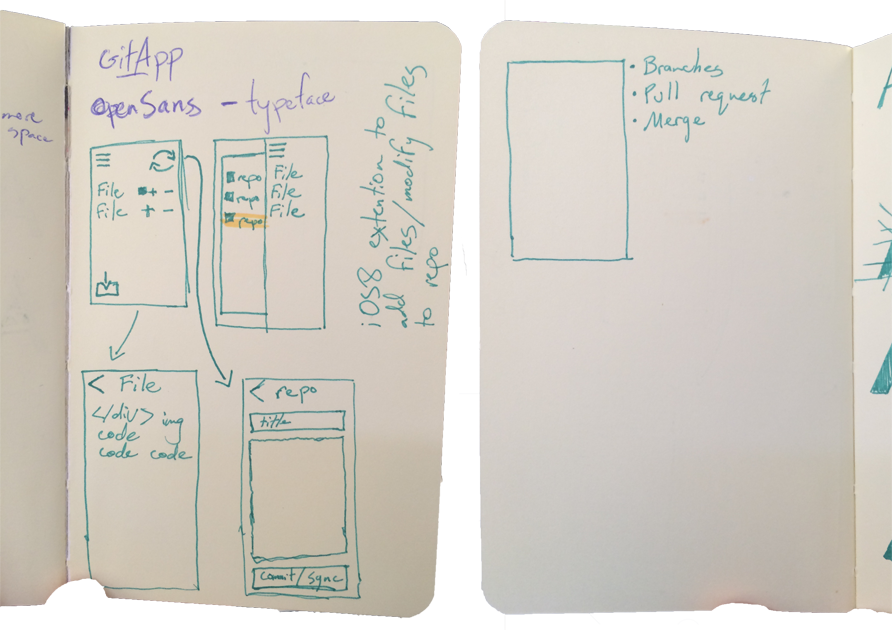 more
space
GitApp
OpenSans - typeface
File + -
File + -
repo
repo
repo
File
File
File
iOS8 extention to
add files/modify files
to repo
< File
</div> img
code
code code
< repo
title
commit/sync
• Branches
• Pull request
• Merge